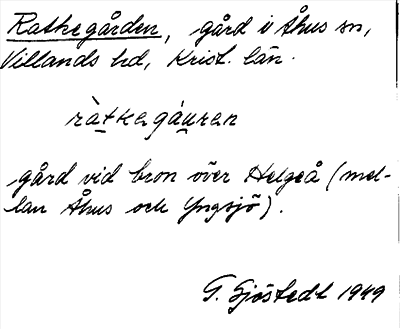 Rathegården, gård i Åhus sn,
Villands hd, Krist. län.
ràtkegáuren
gård vid bron över Helgeå (mel-
lan Åhus och Yngsjö).
G. Sjöstedt 1949